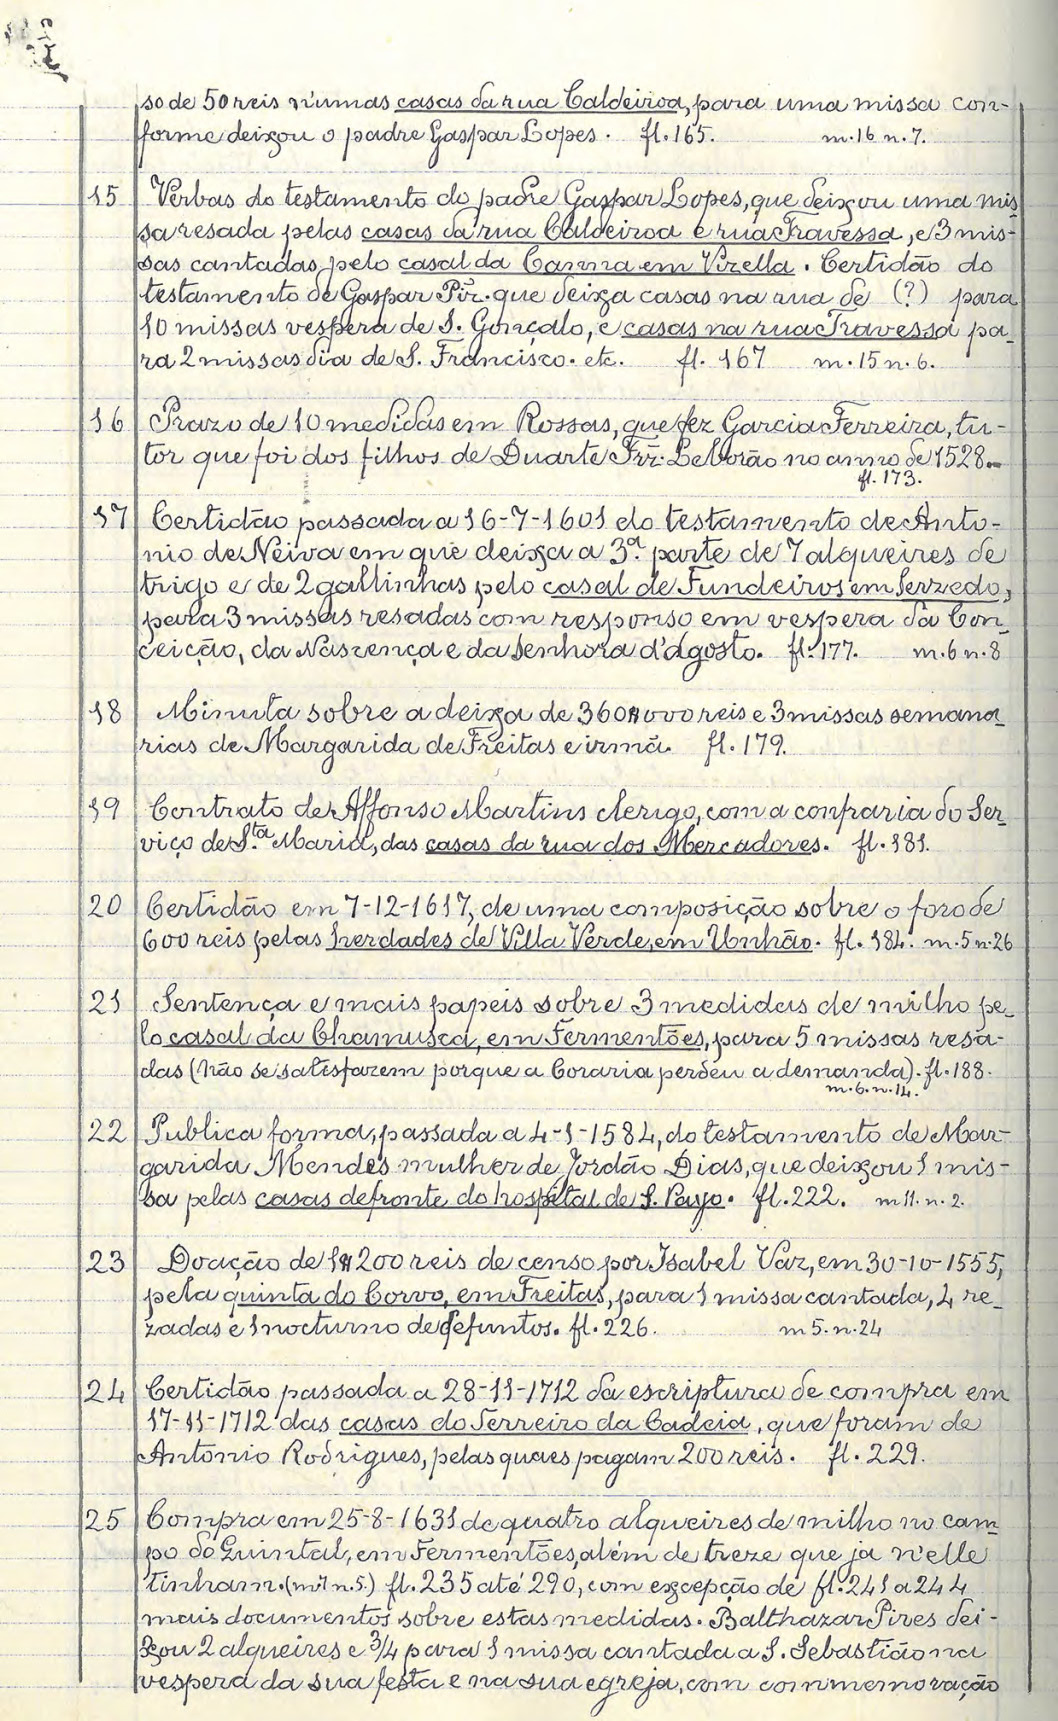 so de 50 reis n'umas casas da rua Caldeiroa, para uma missa con-
forme deixou o padre Gaspar Lopes. fl. 165. m. 16 n. 7.
15 Verbas do testamento do padre Gaspar Lopes, que deixou uma mis
sa resada pelas casas da rua Caldeiroa e rua Travessa, e 3 mis-
sas cantadas pelo casal da Canna em Vizella. Certidão do
testamento de Gaspar Piz. que deixa casas na rua de (?) para
10 missas vespera de S. Gonçalo, e casas na rua Travessa pa-
ra 2 missas dia de S. Francisco. etc. fl. 167 m. 15 n. 6.
16 Prazo de 10 medidas em Rossas, que fez Garcia Ferreira, tu-
tor que foi dos filhos de Duarte Frz. Leborão no anno de 1528.
fl. 173.
17 Certidão passada a 16-7-1601 do testamento de Anto-
nio de Neiva em que deixa a 3ª. parte de 7 alqueires de
trigo e de 2 gallinhas pelo casal de Fundeiros em Serzedo,
para 3 missas resadas com responso em vespera da Con-
ceição, da Nascença e da Senhora d'Agosto. fl. 177. m. 6 n. 8
18 Minuta sobre a deixa de 360$000 reis e 3 missas semana-
rias de Margarida de Freitas e irmã. fl. 179.
19 Contrato de Affonso Martins clerigo, com a confraria do Ser-
viço de S.ta Maria, das casas da rua dos Mercadores. fl. 181.
20 Certidão em 7-12-1617, de uma composição sobre o foro de
600 reis pelas herdades de Villa Verde, em Unhão. fl. 184. m. 5 n. 26
21 Sentença e mais papeis sobre 3 medidas de milho pe-
lo casal da Chamusca, em Fermentões, para 5 missas resa-
das (não se satisfazem porque a Coraria perdeu a demanda). fl. 188.
m. 6. n. 14.
22 Publica forma, passada a 4-1-1584, do testamento de Mar-
garida Mendes mulher de Jordão Dias, que deixou 1 mis-
sa pelas casas defronte do hospital de S. Payo. fl. 222. m 11. n. 2.
23 Doação de 1$200 reis de censo por Isabel Vaz, em 30-10-1555,
pela quinta do Corvo, em Freitas, para 1 missa cantada, 4 re-
zadas e 1 nocturno de defuntos. fl. 226. m 5. n. 24
24 Certidão passada a 28-11-1712 da escriptura de compra em
17-11-1712 das casas do Terreiro da Cadeia, que foram de
Antonio Rodrigues, pelas quaes pagam 200 reis. fl. 229.
25 Compra em 25-8-1631 de quatro alqueires de milho no cam-
po do Quintal, em Fermentões, além de treze que ja n'elle
tinham. (m. 7 n. 5.) fl. 235 até 290, com excepção de fl. 241 a 244
mais documentos sobre estas medidas. Balthazar Pires dei-
xou 2 alqueires e 3/4 para 1 missa cantada a S. Sebastião na
vespera da sua festa e na sua egreja, com commemoração